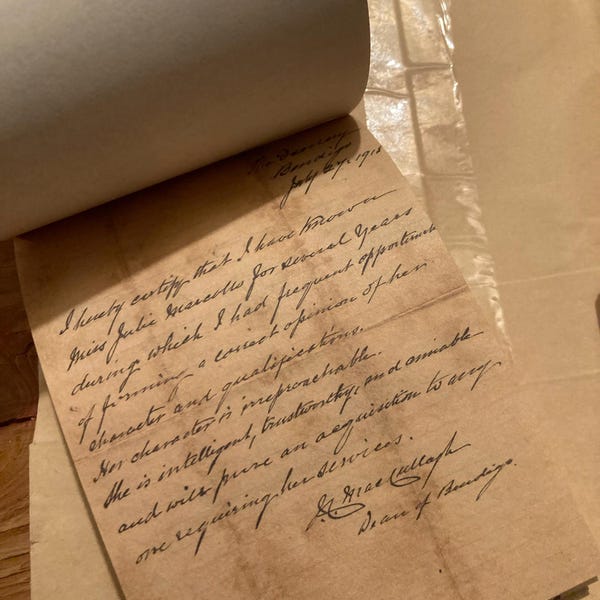 The Deanery
Bendigo
July 1918
I hereby certify that I have known
Miss Julie Marcollo for several years
during which I had frequent opportunities
of forming a correct opinion of her
character and qualifications.
Her character is irreproachable.
She is intelligent, trustworthy, and amiable
and will prove an acquisition to any
one requiring her services.
J. MacCullagh
Dean of Bendigo.